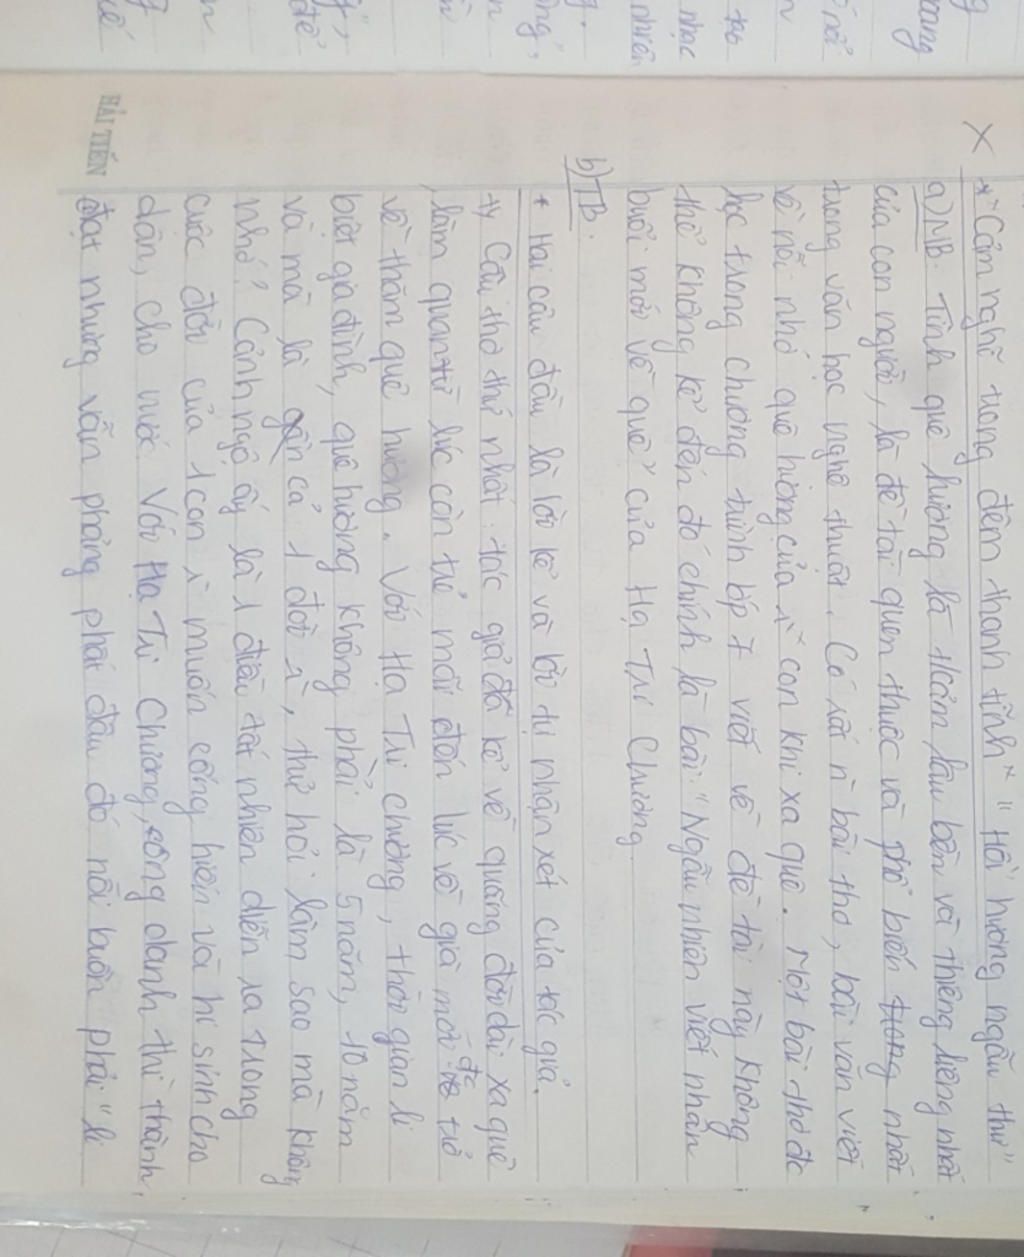 * "Cảm nghĩ trong đêm thanh tĩnh" * "Hồi hương ngẫu thư"
a) MB. Tình quê hương là t/cảm lâu bền và thiêng liêng nhất
của con người, là đề tài quen thuộc và phổ biến trong nhất
trong văn học nghệ thuật. Có rất n bài thơ, bài văn viết
về nỗi nhớ quê hương của con khi xa quê. Một bài thơ đc
học trong chương trình lớp 7 viết về đề tài này không
thể không kể đến đó chính là bài: "Ngẫu nhiên viết nhân
buổi mới về quê" của Hạ Tri Chương.
b) TB.
* Hai câu đầu là lời kể và lời tự nhận xét của tác giả.
Câu thơ thứ nhất: tác giả đã kể về quãng đời dài xa quê
, làm quan từ lúc còn trẻ mãi đến lúc về già mới đc trở
về thăm quê hương. Với Hạ Tri Chương, thời gian li
biệt gia đình, quê hương không phải là 5 năm, 10 năm
và mà là gần cả 1 đời, thử hỏi làm sao mà không
nhớ? Cảnh ngộ ấy là 1 điều tất nhiên diễn ra trong
cuộc đời của 1 con muốn cống hiến và hi sinh cho
dân, cho nước. Với Hạ Tri Chương, công danh thì thành
đạt nhưng vẫn phảng phất đâu đó nỗi buồn phải "li
HẢI TIẾN
nhiên
nhạc